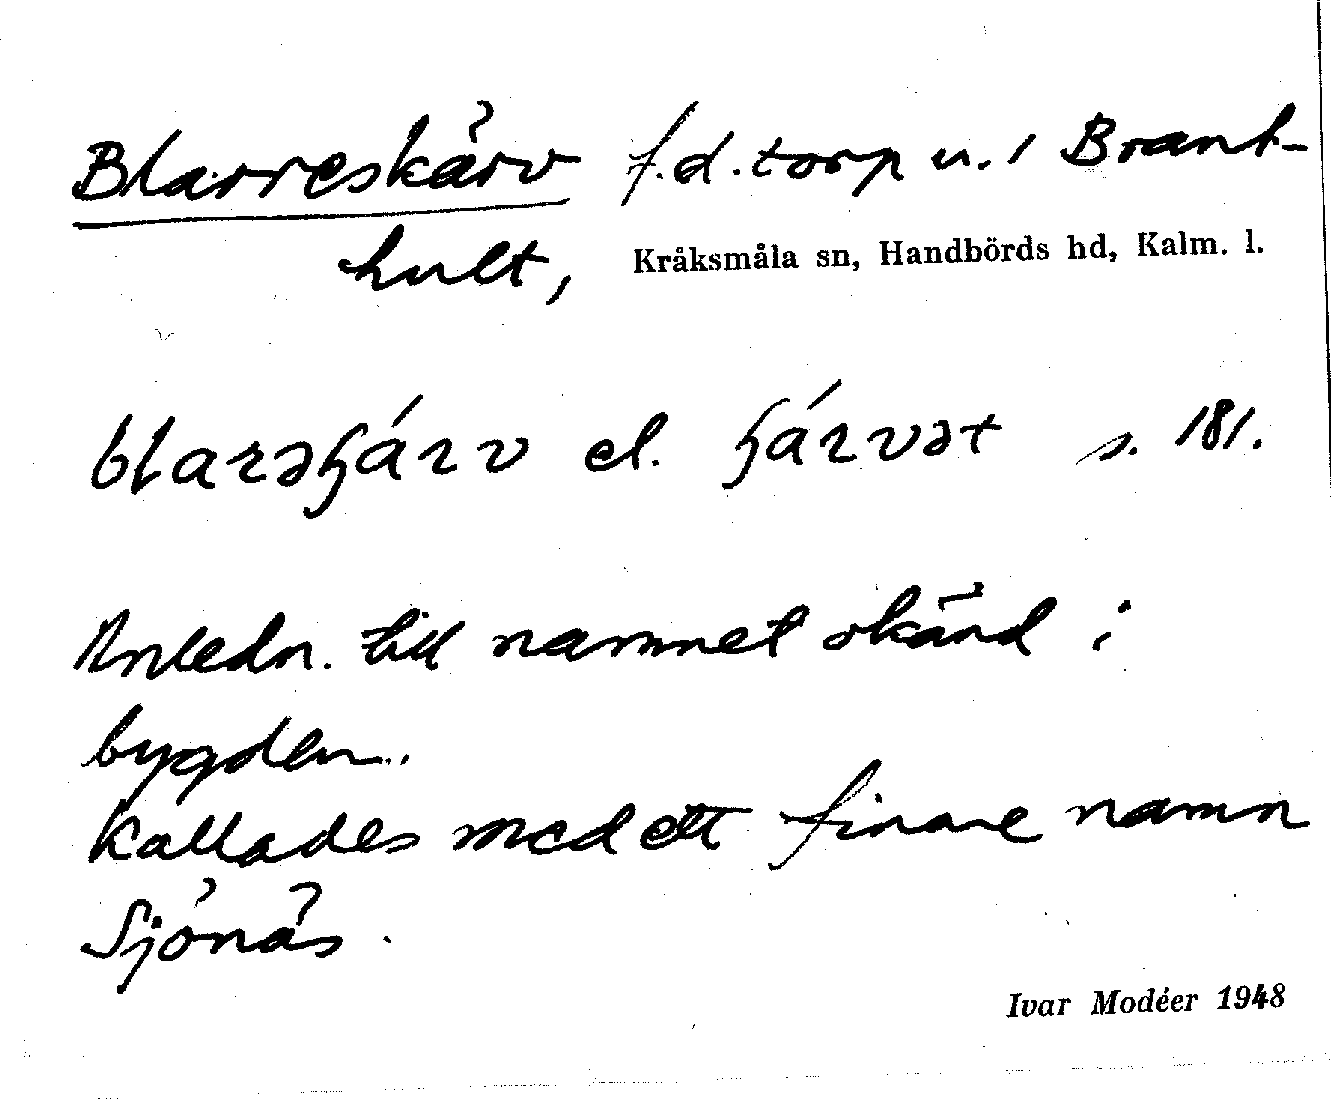 Blarreskärv f.d. torp u. 1 Brant-
hult, Kråksmåla sn, Handbörds hd, Kalm. l.
s. 181.
Anledn. till namnet okänd i
bygden.
Kallades med ett finare namn
Sjönäs.
Ivar Modéer 1948